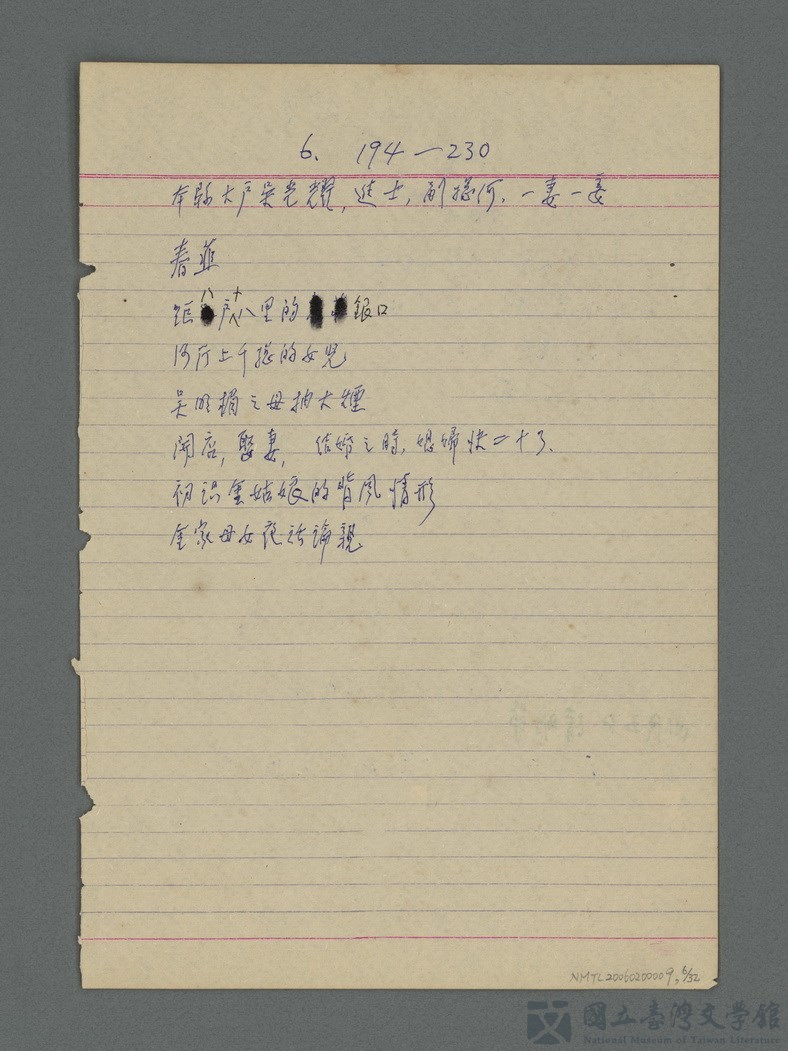 6. 194—230
本縣大戶吳光耀,進士,副總河.一妻一妾
春韮
距八戶十八里的銀口
河斤上千總的女兒
吳明揚之母抽大煙
開店,娶妻,結婚之時.媳婦快二十了.
初識金姑娘的背風情形
金家母女夜話論親
NMTL20060200009,6/32
國立臺灣文學館
National Museum of Taiwan Literature